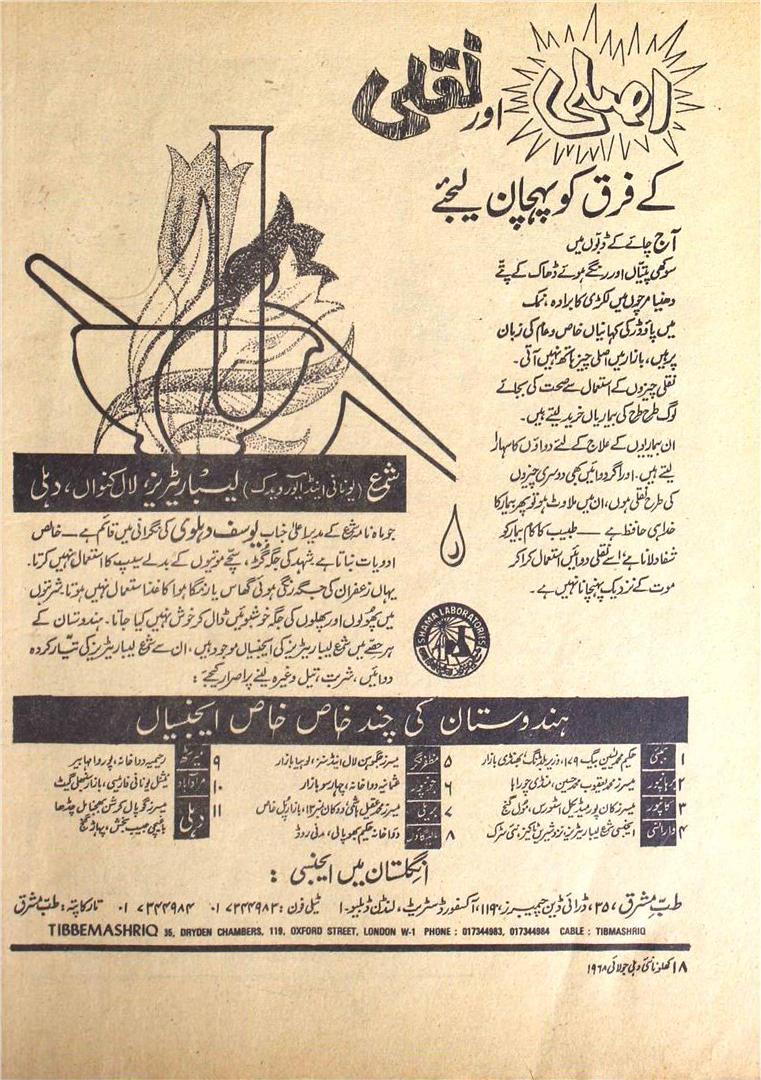 اصلی اور نقلی
کے فرق کو پہچان لیجئے
آج چائے کے ڈبّوں میں
سوکھی پتیّاں اور رنگے ہوئے ڈھاک کے پتّے
دھنیا مرچوں میں لکڑی کا برادہ، نمک
میں پاؤڈر کی کہانیاں خاص و عام کی زبان
پر ہیں، بازار میں اصلی چیز ہاتھ نہیں آتی۔
نقلی چیزوں کے استعمال سے صحت کی بجائے
لوگ طرح طرح کی بیماریاں خرید لیتے ہیں۔
ان بیماریوں کے علاج کے لئے دواؤں کا سہارا
لیتے ہیں۔ اور اگر دوائیں بھی دوسری چیزوں
کی طرح نقلی ہوں، ان میں ملاوٹ ہو تو پھر بیمار کا
خدا ہی حافظ ہے — طبیب کا کام بیمار کو
شفا دلانا ہے، اسے نقلی دوائیں استعمال کرا کر
موت کے نزدیک پہنچانا نہیں ہے۔
شمع (یونانی اینڈ آیورویدک) لیباریٹریز، لال کنواں، دہلی
جو ماہنامہ شمع کے مدیر اعلیٰ جناب یوسف دہلوی کی نگرانی میں قائم ہے — خالص
ادویات بناتا ہے۔ شہد کی جگہ گڑ، سچّے موتیوں کے بدلے سیپ کا استعمال نہیں کرتا۔
یہاں زعفران کی جگہ رنگی ہوئی گھاس یا رنگا ہوا کاغذ استعمال نہیں ہوتا۔ شربتوں
میں پھولوں اور پھلوں کی جگہ خوشبوئیں ڈال کر خوش نہیں کیا جاتا۔ ہندوستان کے
ہر حصّے میں شمع لیباریٹریز کی ایجنسیاں موجود ہیں، ان سے شمع لیباریٹریز کی تیّار کردہ
دوائیں، شربت، تیل وغیرہ لینے پر اصرار کیجئے:
SHAMA LABORATORIES
ہندوستان کی چند خاص خاص ایجنسیاں
۱ بمبئی حکیم محمد یٰسین بیگ ۱۷۹، وزیر بلڈنگ، بھنڈی بازار
۲ برہانپور میسرز محمد یعقوب محمد حسین، منڈی چوراہا
۳ کانپور میسرز کان پور میڈیکل اسٹورس، مول گنج
۴ وارانسی ایجنسی شمع لیباریٹریز، نزد شیریں ٹاکیز، نئی سڑک
۵ مظفرنگر میسرز بھگوبن لال اینڈ سنز، لوہیا بازار
۶ جونپور عثمانیہ دواخانہ، چہار سو بازار
۷ بریلی میسرز محمد عقیل ہاشمی دوکان نمبر ۱۳، بازار پل خاص
۸ مالیگاؤں دواخانہ حکیم بھوپالی، مدنی روڈ
۹ میرٹھ رحیمیہ دواخانہ، پوروا مہابیر
۱۰ مرادآباد نیشنل یونانی فارمیسی، بازار سنبھلی گیٹ
۱۱ دہلی میسرز گوپال کرشن بھجنا مل چڈھا
باغیچی حبیب بخش، پہاڑ گنج
انگلستان میں ایجنسی:
طبِّ مشرق، ۳۵، ڈرائی ڈین چیمبرز، ۱۱۹، آکسفورڈ سٹریٹ، لنڈن ڈبلیو-۱ ٹیلی فون: ۰۱۷۳۴۴۹۸۳ ۰۱۷۳۴۴۹۸۴ تار کا پتہ: طبِّ مشرق
TIBBEMASHRIQ 35, DRYDEN CHAMBERS, 119, OXFORD STREET, LONDON W-1 PHONE : 017344983, 017344984 CABLE : TIBMASHRIQ
۱۸ کھلونا نئی دہلی جولائی ۱۹۶۸